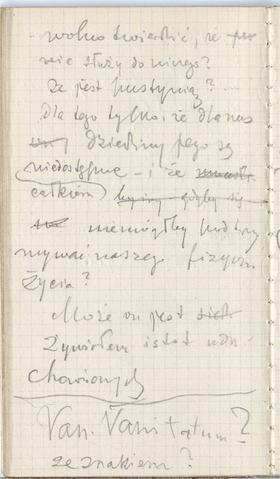 - wolno twierdzić, że
nic służy do niczego?
że jest pustynią?
dla tego tylko, że dla nas
dziedziny jego są
niedostępne - i że
całkiem być
nie mógłby podtrzy
mywać naszego fizyczn
życia?
Może on jest
żywiołem istot udu -
chowionych
Van. Vanitatum?
ze znakiem?